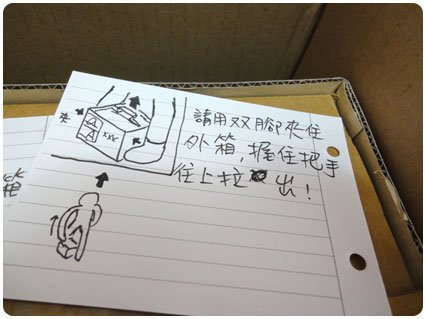 請用双腳夾住
外箱,握住把手
住上拉出!
夾
XXX
箱